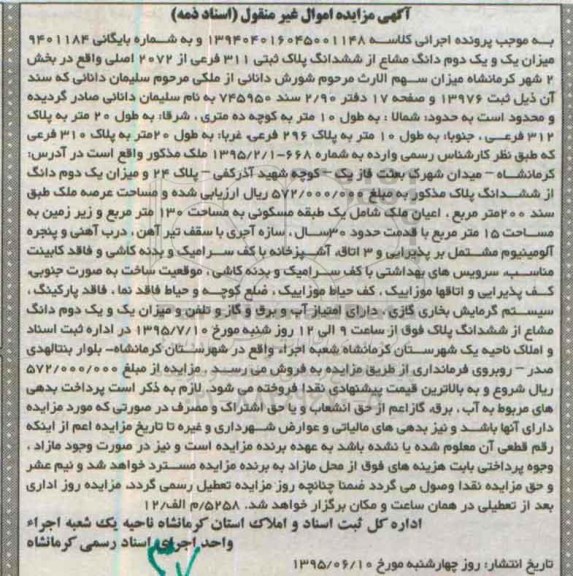 آگهی مزایده اموال غیر منقول (اسناد ذمه)
به موجب پرونده اجرائی کلاسه ۱۳۹۴۰۴۰۱۶۰۴۵۰۰۱۱۴۸ و به شماره بایگانی ۹۴۰۱۱۸۴
میزان یک و یک دوم دانگ مشاع از ششدانگ پلاک ثبتی ۳۱۱ فرعی از ۲۰۷۲ اصلی واقع در بخش
۲ شهر کرمانشاه میزان سهم الارث مرحوم شورش دانائی از ملکی مرحوم سلیمان دانائی که سند
آن ذیل ثبت ۱۳۹۷۶ و صفحه ۱۷ دفتر ۲/۹۰ سند ۷۴۵۹۵۰ به نام سلیمان دانائی صادر گردیده
و محدود است به حدود: شمالا : به طول ۱۰ متر به کوچه ده متری ، شرقا: به طول ۲۰ متر به پلاک
۳۱۲ فرعی ، جنوبا: به طول ۱۰ متر به پلاک ۲۹۶ فرعی، غربا: به طول ۲۰متر به پلاک ۳۱۰ فرعی
که طبق نظر کارشناس رسمی وارده به شماره ۶۶۸-۱۳۹۵/۲/۱ ملک مذکور واقع است در آدرس:
کرمانشاه – میدان شهرک بعثت فاز یک – کوچه شهید آذرکفی – پلاک ۲۴ و میزان یک دوم دانگ
از ششدانگ پلاک مذکور به مبلغ ۵۷۲/۰۰۰/۰۰۰ ریال ارزیابی شده و مساحت عرصه ملک طبق
سند ۲۰۰متر مربع ، اعیان ملک شامل یک طبقه مسکونی به مساحت ۱۳۰ متر مربع و زیر زمین به
مساحت ۱۵ متر مربع با قدمت حدود ۳۰سال، سازه آجری با سقف تیر آهن ، درب آهنی و پنجره
آلومینیوم مشتمل بر پذیرایی و ۳ اتاق، آشپزخانه با کف سرامیک و بدنه کاشی و فاقد کابینت
مناسب، سرویس های بهداشتی با کف سرامیک و بدنه کاشی ، موقعیت ساخت به صورت جنوبی،
کف پذیرایی و اتاقها موزاییک ، کف حیاط موزاییک ، ضلع کوچه و حیاط فاقد نما ، فاقد پارکینگ ،
سیستم گرمایش بخاری گازی ، دارای امتیاز آب و برق و گاز و تلفن و میزان یک و یک دوم دانگ
مشاع از ششدانگ پلاک فوق از ساعت ۹ الی ۱۲ روز شنبه مورخ ۱۳۹۵/۷/۱۰ در اداره ثبت اسناد
و املاک ناحیه یک شهرستان کرمانشاه شعبه اجراء واقع در شهرستان کرمانشاه- بلوار بنتالهدی
صدر – روبروی فرمانداری از طریق مزایده به فروش می رسد . مزایده از مبلغ ۵۷۲/۰۰۰/۰۰۰
ریال شروع و به بالاترین قیمت پیشنهادی نقدا فروخته می شود. لازم به ذکر است پرداخت بدهی
های مربوط به آب ، برق، گاز اعم از حق انشعاب و یا حق اشتراک و مصرف در صورتی که مورد مزایده
دارای آنها باشد و نیز بدهی های مالیاتی و عوارض شهرداری و غیره تا تاریخ مزایده اعم از اینکه
رقم قطعی آن معلوم شده یا نشده باشد به عهده برنده مزایده است و نیز در صورت وجود مازاد ،
وجوه پرداختی بابت هزینه های فوق از محل مازاد به برنده مزایده مسترد خواهد شد و نیم عشر
و حق مزایده نقدا وصول می گردد ضمنا چنانچه روز مزایده تعطیل رسمی گردد، مزایده روز اداری
بعد از تعطیلی در همان ساعت و مکان برگزار خواهد شد. ۵۲۵۸/م الف/۱۲
اداره کل ثبت اسناد و املاک استان کرمانشاه ناحیه یک شعبه اجراء
واحد اجرای اسناد رسمی کرمانشاه
تاریخ انتشار: روز چهارشنبه مورخ ۱۳۹۵/۰۶/۱۰
۳۷